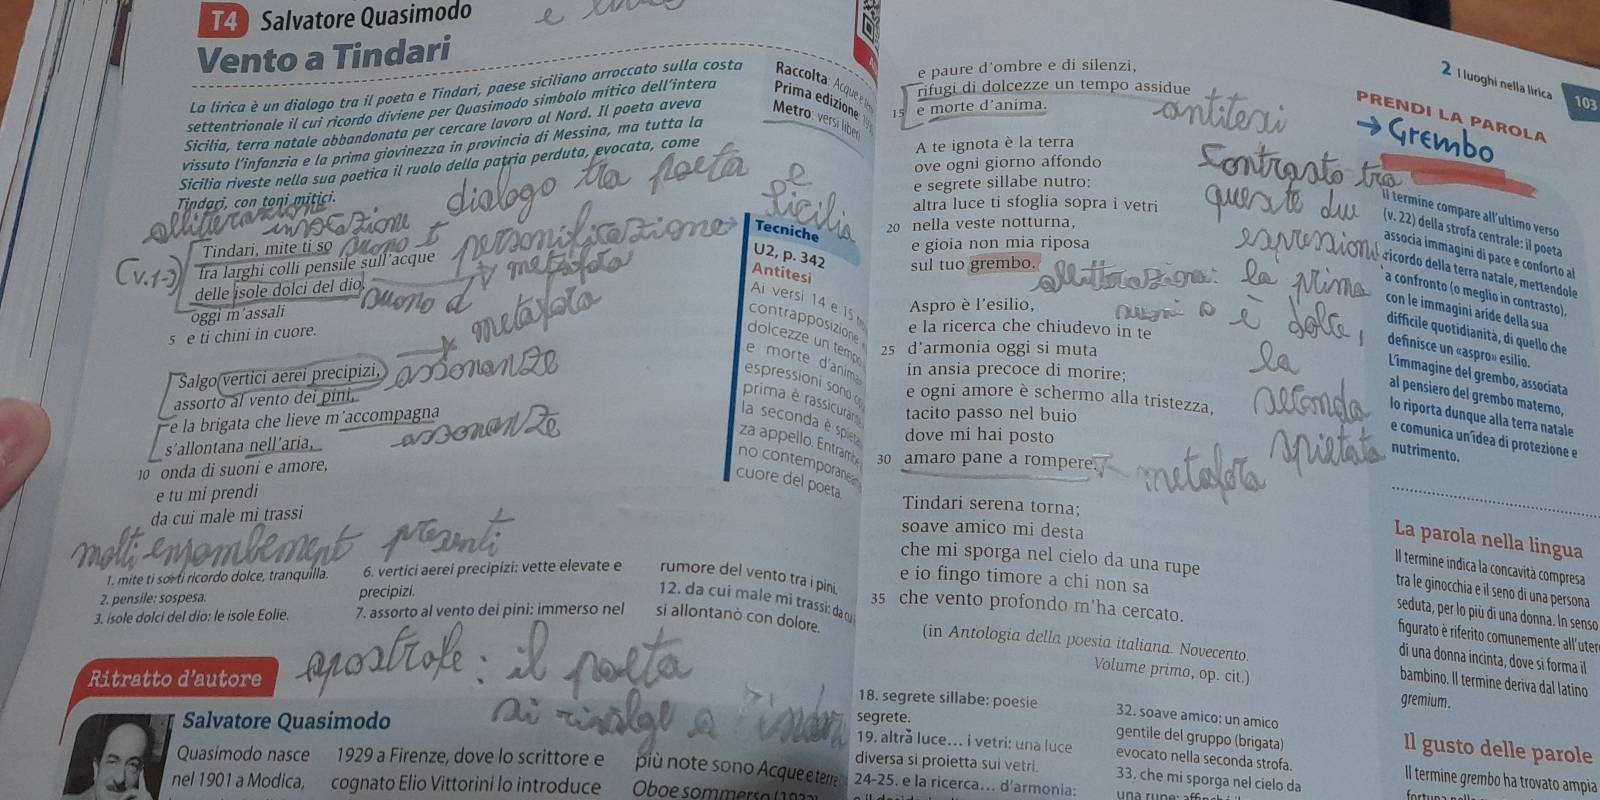 T4 Salvatore Quasimodo
Vento a Tindari
La lirica è un dialogo tra il poeta e Tindari, paese siciliano arroccato sulla costa
settentrionale il cui ricordo diviene per Quasimodo simbolo mitico dell'intera
Sicilia, terra natale abbandonata per cercare lavoro al Nord. Il poeta aveva
vissuto l'infanzia e la prima giovinezza in provincia di Messina, ma tutta la
Sicilia riveste nella sua poetica il ruolo della patria perduta, evocata, come
Tindari, con toni mitici.
Raccolta: Acque e
Prima edizione
Metro: versi liberi
dialogo tra poeta e
Sicilia
alliterazione
invocazione
suono t
personificazione
(v.1-3)
Tindari, mite ti so
fra larghi colli pensile sull'acque
metafora
delle isole dolci del dio,
suono d
oggi m'assali
metafora
5 e ti chini in cuore.
Salgo vertici aerei precipizi,
assonanze
assorto al vento dei pini,
e la brigata che lieve m'accompagna
assonanze
s'allontana nell'aria,
10 onda di suoni e amore,
e tu mi prendi
da cui male mi trassi
molti enjambement presenti
Tecniche
U2, p. 342
Antitesi
Ai versi 14 e 15
contrapposizione
dolcezze un tempo
e morte d'anima
espressioni sono
prima è
la seconda è
za appello.
no
cuore del poeta.
1. mite ti so: ti ricordo dolce, tranquilla.
2. pensile: sospesa.
3. isole dolci del dio: le isole Eolie.
6. vertici aerei precipizi: vette elevate e
precipizi.
7. assorto al vento dei pini: immerso nel
rumore del vento tra i pini.
12. da cui male mi trassi: da
si allontanò con dolore.
apostrofe: il poeta
si rivolge a Tindari
Ritratto d'autore
Salvatore Quasimodo
Quasimodo nasce
nel 1901 a Modica,
1929 a Firenze, dove lo scrittore e
cognato Elio Vittorini lo introduce
più note sono Acque e terre
Oboe sommerso
2 I luoghi nella lirica 103
e paure d'ombre e di silenzi,
rifugi di dolcezze un tempo assidue
15 e morte d'anima.
antitesi
A te ignota è la terra
ove ogni giorno affondo
e segrete sillabe nutro:
altra luce ti sfoglia sopra i vetri
20 nella veste notturna,
e gioia non mia riposa
sul tuo grembo.
contrasto tra
queste due
espressioni
la prima
è dolce,
la
seconda
spietata
Aspro è l'esilio,
e la ricerca che chiudevo in te
25 d'armonia oggi si muta
in ansia precoce di morire;
e ogni amore è schermo alla tristezza,
tacito passo nel buio
dove mi hai posto
30 amaro pane a rompere.
metafora
Tindari serena torna;
soave amico mi desta
che mi sporga nel cielo da una rupe
e io fingo timore a chi non sa
35 che vento profondo m'ha cercato.
(in Antologia della poesia italiana. Novecento.
Volume primo, op. cit.)
18. segrete sillabe: poesie
segrete.
19. altra luce... i vetri: una luce
diversa si proietta sui vetri.
24-25. e la ricerca... d'armonia:
32. soave amico: un amico
gentile del gruppo (brigata)
evocato nella seconda strofa.
33. che mi sporga nel cielo da
PRENDI LA PAROLA
→ Grembo
Il termine compare all'ultimo verso
(v. 22) della strofa centrale: il poeta
associa immagini di pace e conforto al
ricordo della terra natale, mettendole
a confronto (o meglio in contrasto),
con le immagini aride della sua
difficile quotidianità, di quello che
definisce un «aspro» esilio.
L'immagine del grembo, associata
al pensiero del grembo materno,
lo riporta dunque alla terra natale
e comunica un'idea di protezione e
nutrimento.
La parola nella lingua
Il termine indica la concavità compresa
tra le ginocchia e il seno di una persona
seduta, per lo più di una donna. In senso
figurato è riferito comunemente all'uter
di una donna incinta, dove si forma il
bambino. Il termine deriva dal latino
gremium.
Il gusto delle parole
Il termine grembo ha trovato ampia